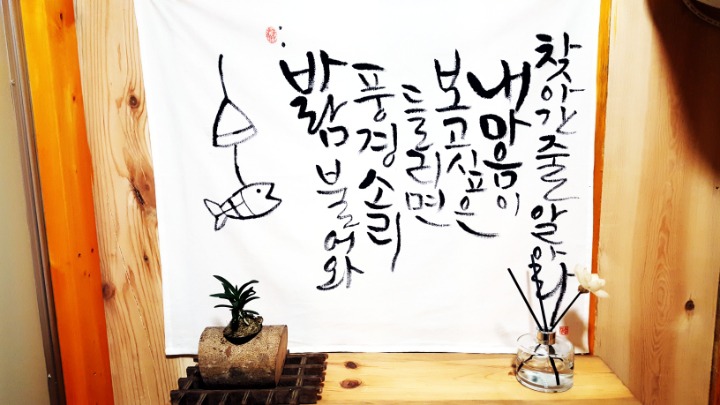 바람 불어와
풍경 소리
들리면
보고싶은
내 마음이
찾아간 줄 알아라